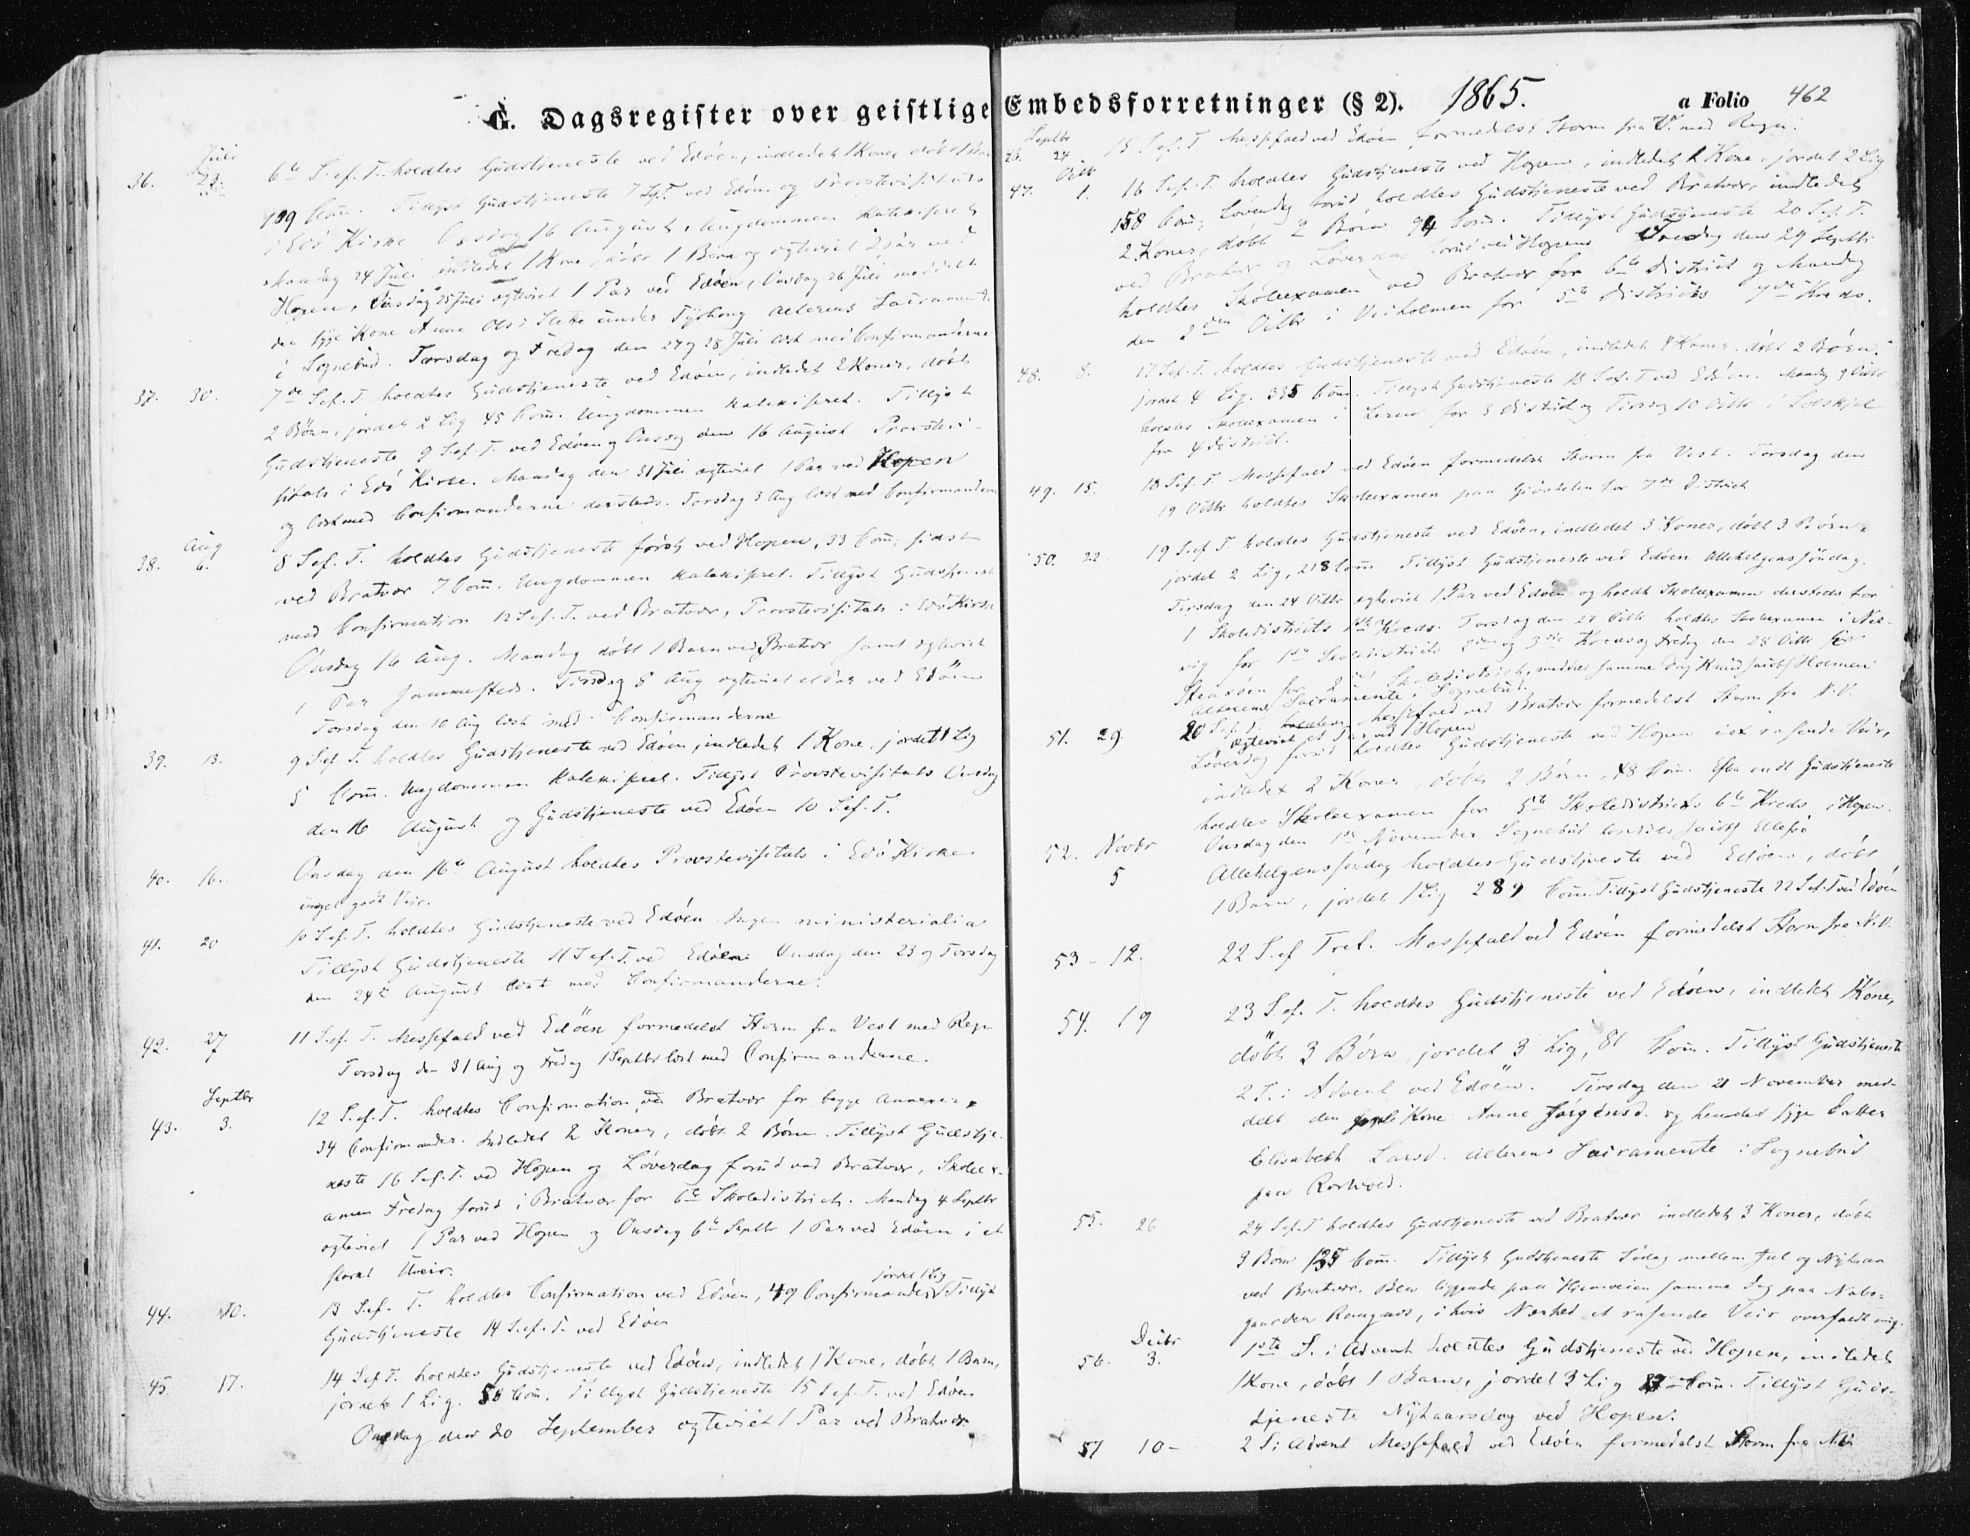 G. Dagsregister over geistlige Embedsforretninger (§ 2). 1865. a Folio 462
Juli
36. 23. 6te S. ef. T. holdtes Gudstjeneste ved Edöen, indledet 1 Kone, döbt 1 Barn
109 Com. Tillyst Gudstjeneste 7 S.e.T. ved Edöen og Provstevisitats
i Edö Kirke Onsdag 16 August, Ungdommen katekiseret
Mandag 24 Juli indledet 1 Kone, döbt 1 Barn og egteviet 2 Par ved
Hopen, Tirsdag 25 Juli egteviet 1 Par ved Edöen, Onsdag 26 Juli meddelt
den syge Kone Anne Olsd Slette under Tyskong Alterens Sacramente
i Sognebud. Torsdag og Fredag den 27 og 28 Juli læst med Confirmanderne
37. 30. 7de S.ef. T. holdtes Gudstjeneste ved Edöen, indledet 2 Koner, döbt
2 Börn, jordet 2 Lig 45 Com. Ungdommen katekiseret. Tillyst
Gudstjeneste 9 S.ef. T. ved Edöen og Onsdag den 16 August Provstevi-
sitats i Edö Kirke. Mandag den 31 Juli egteviet 1 Par ved Hopen
og læst med Confirmanderne dersteds. Torsdag 3 Aug læst med Confirmanderne
Aug
38. 6. 8 S.ef. T. holdtes Gudstjeneste först ved Hopen, 33 Com; sidst
ved Bratvær 7 Com. Ungdommen katekiseret. Tillyst Gudstjeneste
med Confirmation 12 S.ef. T. ved Bratvær, Provstevisitats i Edö Kirke
Onsdag 16 Aug. Mandag döbt 1 Barn ved Bratvær samt egteviet
1 Par sammesteds. Tirsdag 8 Aug egteviet et Par ved Edöen
Torsdag den 10 Aug læst med Confirmanderne
39. 13. 9 S.ef. T. holdtes Gudstjeneste ved Edöen, indledet 1 Kone, jordet 1 Lig
5 Com. Ungdommen katekiseret. Tillyst Provstevisitats Onsdag
den 16 August og Gudstjeneste ved Edöen 10 S.ef. T.
40. 16. Onsdag den 16te August holdtes Provstevisitats i Edö Kirke
meget godt Veir.
41. 20 10 S.ef. T. holdtes Gudstjeneste ved Edöen. Ingen ministerialia
Tillyst Gudstjeneste 11 S.ef. T. ved Edöen Onsdag den 23 og Torsdag
den 24de August læst med Confirmanderne.
42. 27 11 S.ef. T. Messefald ved Edöen formedelst Storm fra Vest med Regn
Torsdag den 31 Aug og Fredag 1 Septbr læst med Confirmanderne.
Septbr
43. 3. 12 S.ef. T. holdtes Confirmation ved Bratvær for begge Annexer
34 Confirmander. Indledet 2 Koner, döbt 2 Börn. Tillyst Gudstje-
neste 16 S.ef. T. ved Hopen og Löverdag forud ved Bratvær, Skoleex-
amen Fredag forud i Bratvær for 6te Skoledistrict. Mandag 4 Septbr
egteviet 1 Par ved Hopen og Onsdag 6te Septbr 1 Par ved Edöen i et
stærkt Uveir.
44. 10. 13 S.ef. T. holdtes Confirmation ved Edöen, 49 Confirmander, jordet 1 Lig Tillyst
Gudstjeneste 14 S.ef. T. ved Edöen
45. 17. 14 S.ef T. holdtes Gudstjeneste ved Edöen, indledet 1 Kone, döbt 1 Barn,
jordet 1 Lig. 58 Com. Tillyst Gudstjeneste 15 S.ef. T. ved Edöen
Onsdag den 20 September egteviet 1 Par ved Bratvær
Septbr
46. 24 15 S.ef. T. Messefald ved Edöen formedelst Storm fra V. med Regn.
Octb
47. 1. 16 S.ef. T. holdtes Gudstjeneste ved Hopen, indledet 1 Kone, jordet 2 Lig
158 Com; Löverdag forud holdtes Gudstjeneste ved Bratvær, indledet
2 Koner, döbt 2 Börn 94 Com. Tillyst Gudstjeneste 20 S.ef. T.
ved Bratvær og Löverdag forud ved Hopen Fredag den 29 Septbr
holdtes Skoleexamen ved Bratvær for 6te District og Mandag
den 2den Octbr i Veiholmen for 5te Districts 7de Kreds.
48. 8. 17 S.ef. T. holdtes Gudstjeneste ved Edöen, indledet 4 Koner, döbt 2 Börn,
jordet 4 Lig. 335 Com. Tillyst Gudstjeneste 18 S.ef. T ved Edöen. Mandag 9 Octbr
holdtes Skoleexamen i Leren for 3 District og Tirsdag 10 Octbr i Solskjel
for 4 District.
49. 15. 18 S.ef. T. Messefald ved Edöen formedelst Storm fra Vest. Torsdag den
19 Octbr holdtes Skoleexamen paa Gjöstelen for 7de District
50. 22. 19 S.ef. T. holdtes Gudstjeneste ved Edöen, indledet 3 Koner, döbt 3 Börn,
jordet 2 Lig, 218 Com. Tillyst Gudstjeneste ved Edöen Allehelgens söndag.
Tirsdag den 24 Octbr egteviet 1 Par ved Edöen og holdt Skoleexamen dersteds for
1 Skoledistricts 1ste Kreds. Torsdag den 27 Octbr holdtes Skoleexamen i Nie-
vig for 1ste Skoledistrict 2den og 3die Kreds og Fredag den 28 Octbr for
Skoledistrict, meddelt samme Dag Knud Jacobs Holmen
Alterens Sacramente i Sognebud.
51. 29. 20 S.ef T. holdtes Messefald ved Bratvær formedelst Storm fra N.V.
egteviet et Par ved Hopen
Löverdag forud holdtes Gudstjeneste ved Hopen i et rasende Veir,
indledet 2 Koner, döbt 2 Börn, 48 Com. Efter endt Gudstjeneste
holdtes Skoleexamen for 5te Skoledistricts 6te Kreds i Hopen.
52. Novbr Onsdag den 1ste November Sognebud
5 Allehelgens söndag holdtes Gudstjeneste ved Edöen, döbt
1 Barn, jordet 1 Lig 289 Com. Tillyst Gudstjeneste 22 S.ef. T ved Edöen
53 - 12. 22 S.ef Tref. Messefald ved Edöen formedelst Storm fra N.V.
54. 19 23 S.ef. T. holdtes Gudstjeneste ved Edöen, indledet 1 Kone,
döbt 3 Börn, jordet 3 Lig, 81 Com. Tillyst Gudstjeneste
2 S. i Advent ved Edöen. Tirsdag den 21 November med-
delt den Kone Anne Jörgensd. og hendes syge Datter
Elisabeth Larsd. Alterens Sacramente i Sognebud
paa Rorhved.
55. 26 24 S.ef. T holdtes Gudstjeneste ved Bratvær indledet 3 Koner, döbt
3 Börn 125 Com. Tillyst Gudstjeneste Södag mellem Jul og Nytaar
ved Bratvær. Blev liggende paa Hjemveien samme Dag paa Nabo-
gaarden Rangnæs, i hvis Nærhed et rasende Veir overfaldt mig.
Decbr
56. 3. 1ste S. i Advent holdtes Gudstjeneste ved Hopen, indledet
1 Kone, döbt 1 Barn, jordet 3 Lig 27 Com. Tillyst Guds-
tjeneste Nytaarsdag ved Hopen.
57 10 - 2 S. i Advent Messefald ved Edöen formedelst Storm fra NV